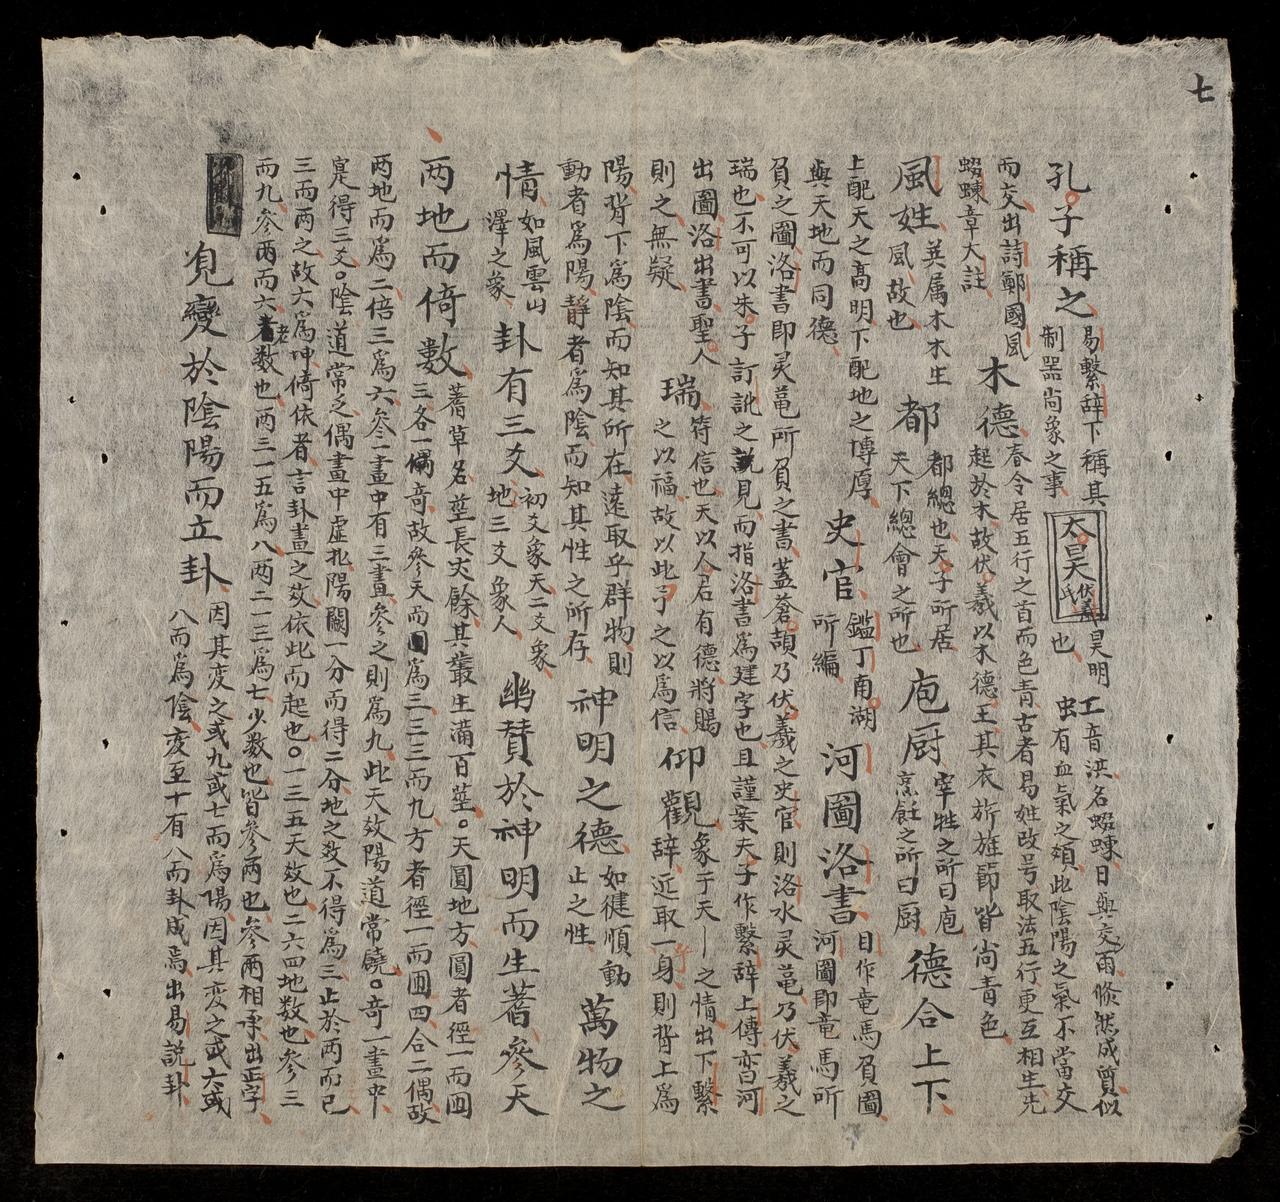 七
孔子稱之
易繫辞下稱其
制器尚象之事
太昊
伏羲氏
昊明
也
工
音洪名蝃蝀日與交雨倐然成質似
虫有血氣之類此陰陽之氣不當交
而交出詩鄘國風
蝃蝀章大註
木德
春令居五行之首而色青古者易姓改号取法五行更互相生先
起於木故伏羲以木德王其衣旂旌節皆尚青色
風姓
巽属木木生
風故也
都
都總也天子所居
天下總會之所也
庖厨
宰牲之所曰庖
烹飪之所曰厨
德合上下
上配天之高明下配地之博厚
與天地而同德
史官
鑑丁南湖
所編
河圖洛書
日作竜馬負圖
河圖即竜馬所
負之圖洛書即灵亀所負之書蓋蒼頡乃伏羲之史官則洛水灵亀乃伏羲之
瑞也不可以朱子訂訛之説見而指洛書爲建字也且謹案夫子作繫辞上傳亦曰河
出圖洛出書聖人
則之無疑
瑞
符信也天以人君有德將賜
之以福故以此予之以爲信
仰觀
象于天丨之情出下繫
辞近取一身則背上爲
陽背下爲陰而知其所在遠取乎群物則
動者爲陽静者爲陰而知其性之所存
神明之德
如健順動
止之性
萬物之
情
如風雲山
澤之象
卦有三爻
初爻象天二爻象
地三爻象人
幽賛於神明而生蓍參天
两地而倚数
蓍草名莖長丈餘其叢生滿百莖。天圓地方圓者徑一而囲
三各一偶奇故參天而爲三三三而九方者徑一而囲四合二偶故
两地而爲二倍三爲六叅一畫中有三畫叅之則爲九此天数陽道常饒。奇一畫中
寔得三爻。陰道常乏偶畫中虚北陽闕一分而得二分地之数不得爲三止於两而已
三而两之故六爲坤倚依者言卦畫之数依此而起也。一三五天数也二六四地数也参三
而九参两而六老数也两三一五爲八两二一三爲七少数也皆参两也参两相承出正字
覌變於陰陽而立卦
因其变之或九或七而爲陽因其变之或六或
八而爲陰变至十有八而卦成焉出易説卦